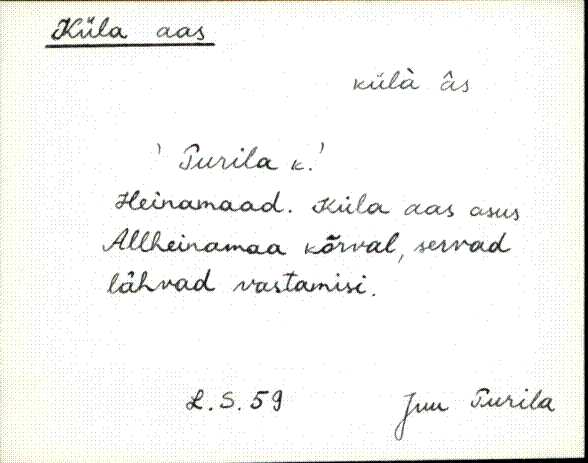 Küla aas
külà âs
' Purila k.'
Heinamaad. Küla aas asus
Allheinamaa kõrval, servad
lähvad vastamisi.
L.S. 59 Juu Purila